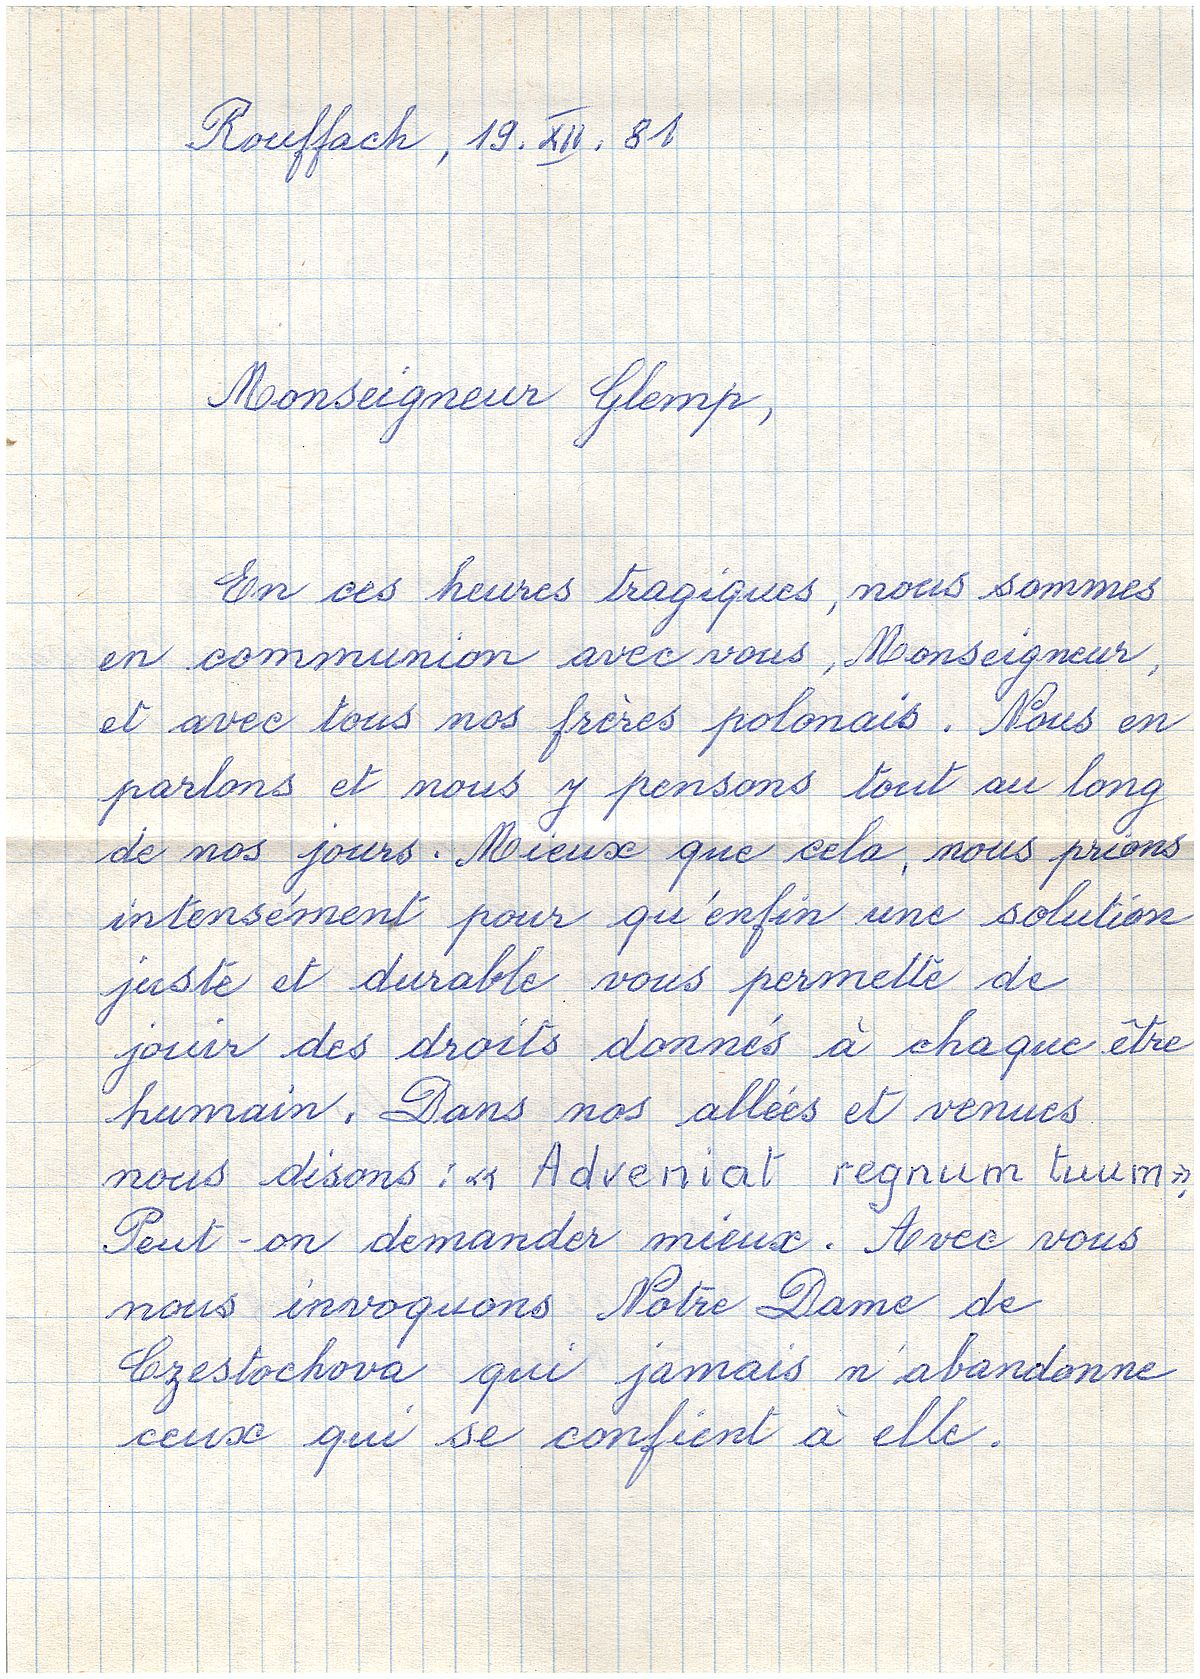 Rouffach, 19. XII. 81
Monseigneur Glemp,
En ces heures tragiques, nous sommes
en communion avec vous, Monseigneur,
et avec tous nos frères polonais. Nous en
parlons et nous y pensons tout au long
de nos jours. Mieux que cela, nous prions
intensément pour qu'enfin une solution
juste et durable vous permette de
jouir des droits donnés à chaque être
humain. Dans nos allées et venues
nous disons : « Adveniat regnum tuum ».
Peut-on demander mieux. Avec vous
nous invoquons Notre Dame de
Czestochova qui jamais n'abandonne
ceux qui se confient à elle.